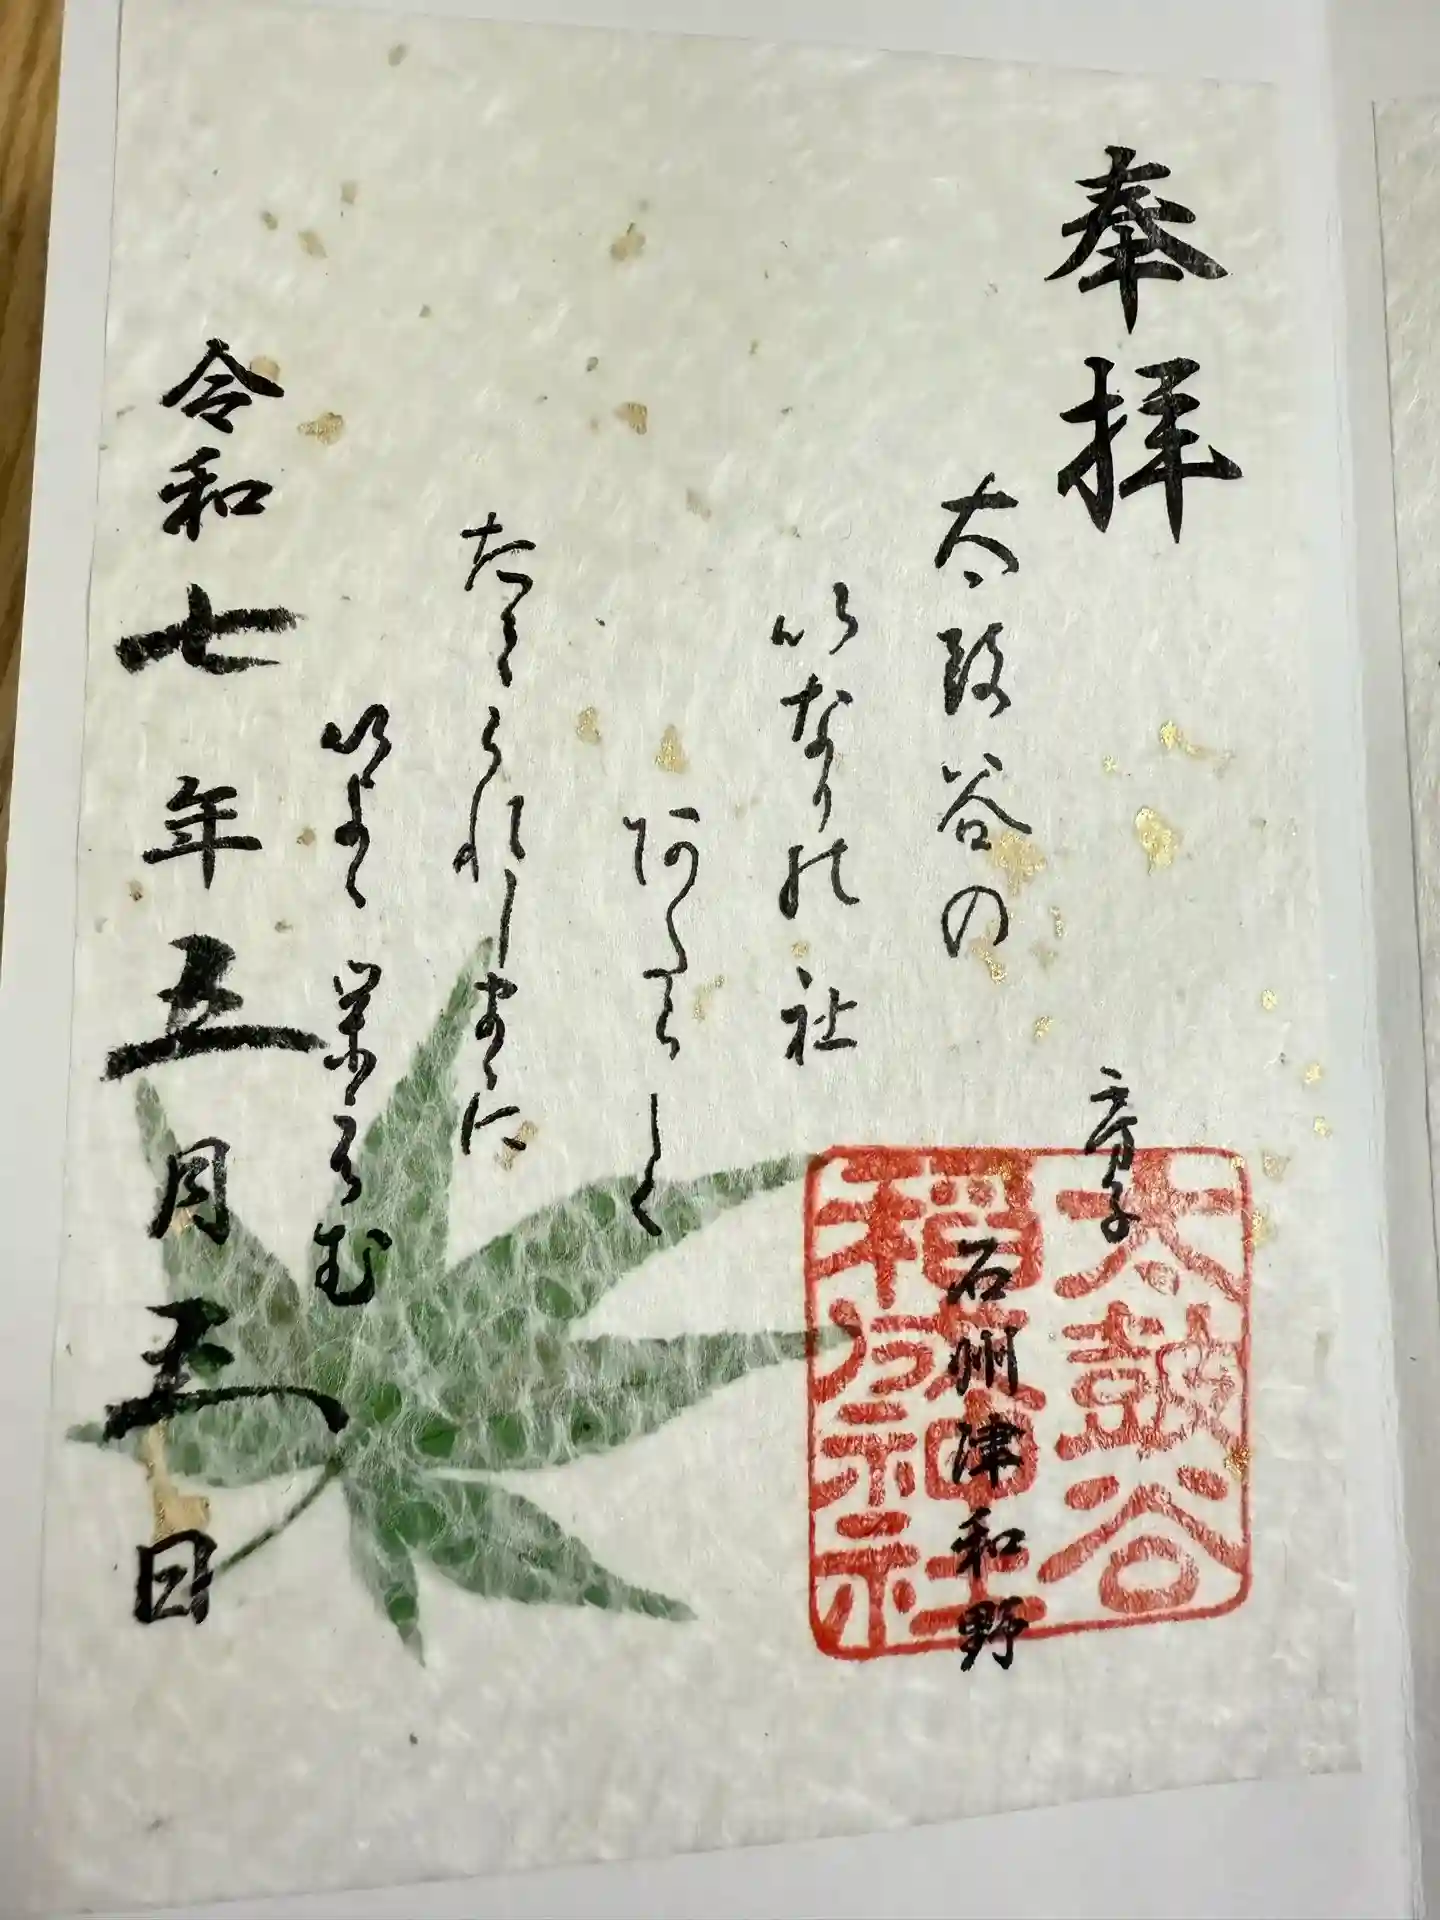 奉拝
太皷谷の
いなりの社
阿たらしく
られしまゝに
いよゝ栄
房子
太皷谷
稲成神社
石州津和野
令和七年五月五日